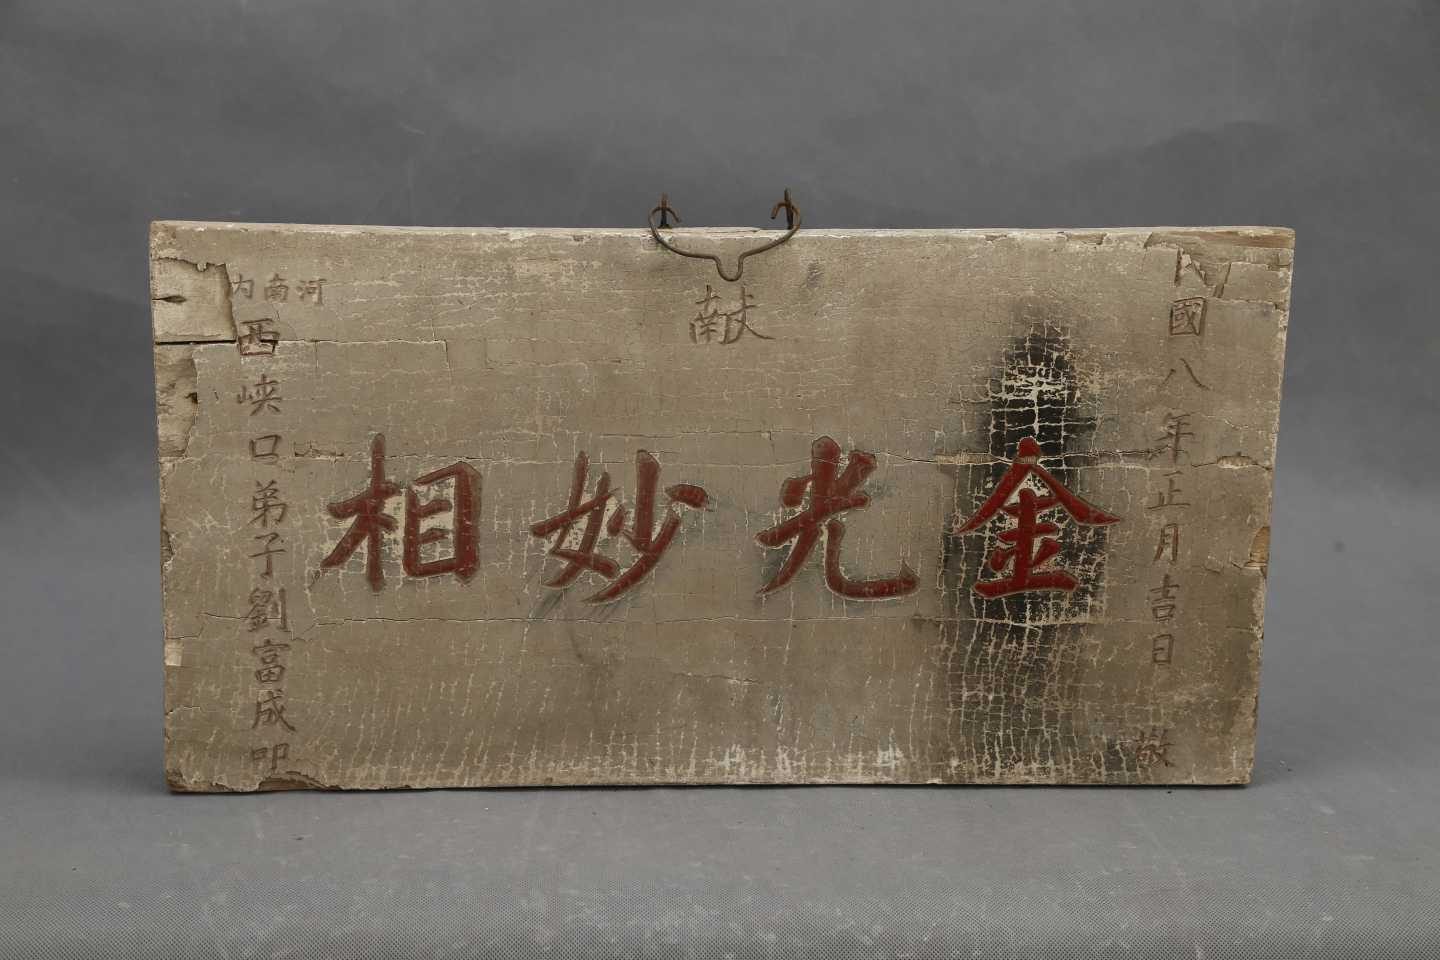 民國八年正月吉日 敬
献
金光妙相
河南内
西峡口弟子劉富成叩